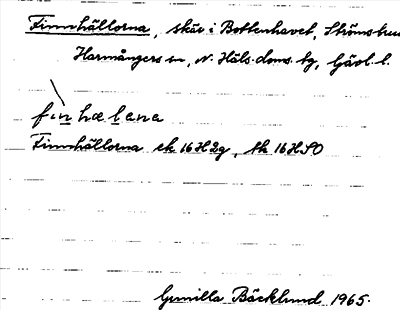 Finnhällorna, skär i Bottenhavet, Strömsbru
Harmångers sn, N. Häls. doms. tg, Gävl. l.
finhælana
Finnhällorna ek 16H2g, tk 16H SO
Gunilla Bäcklund 1965.